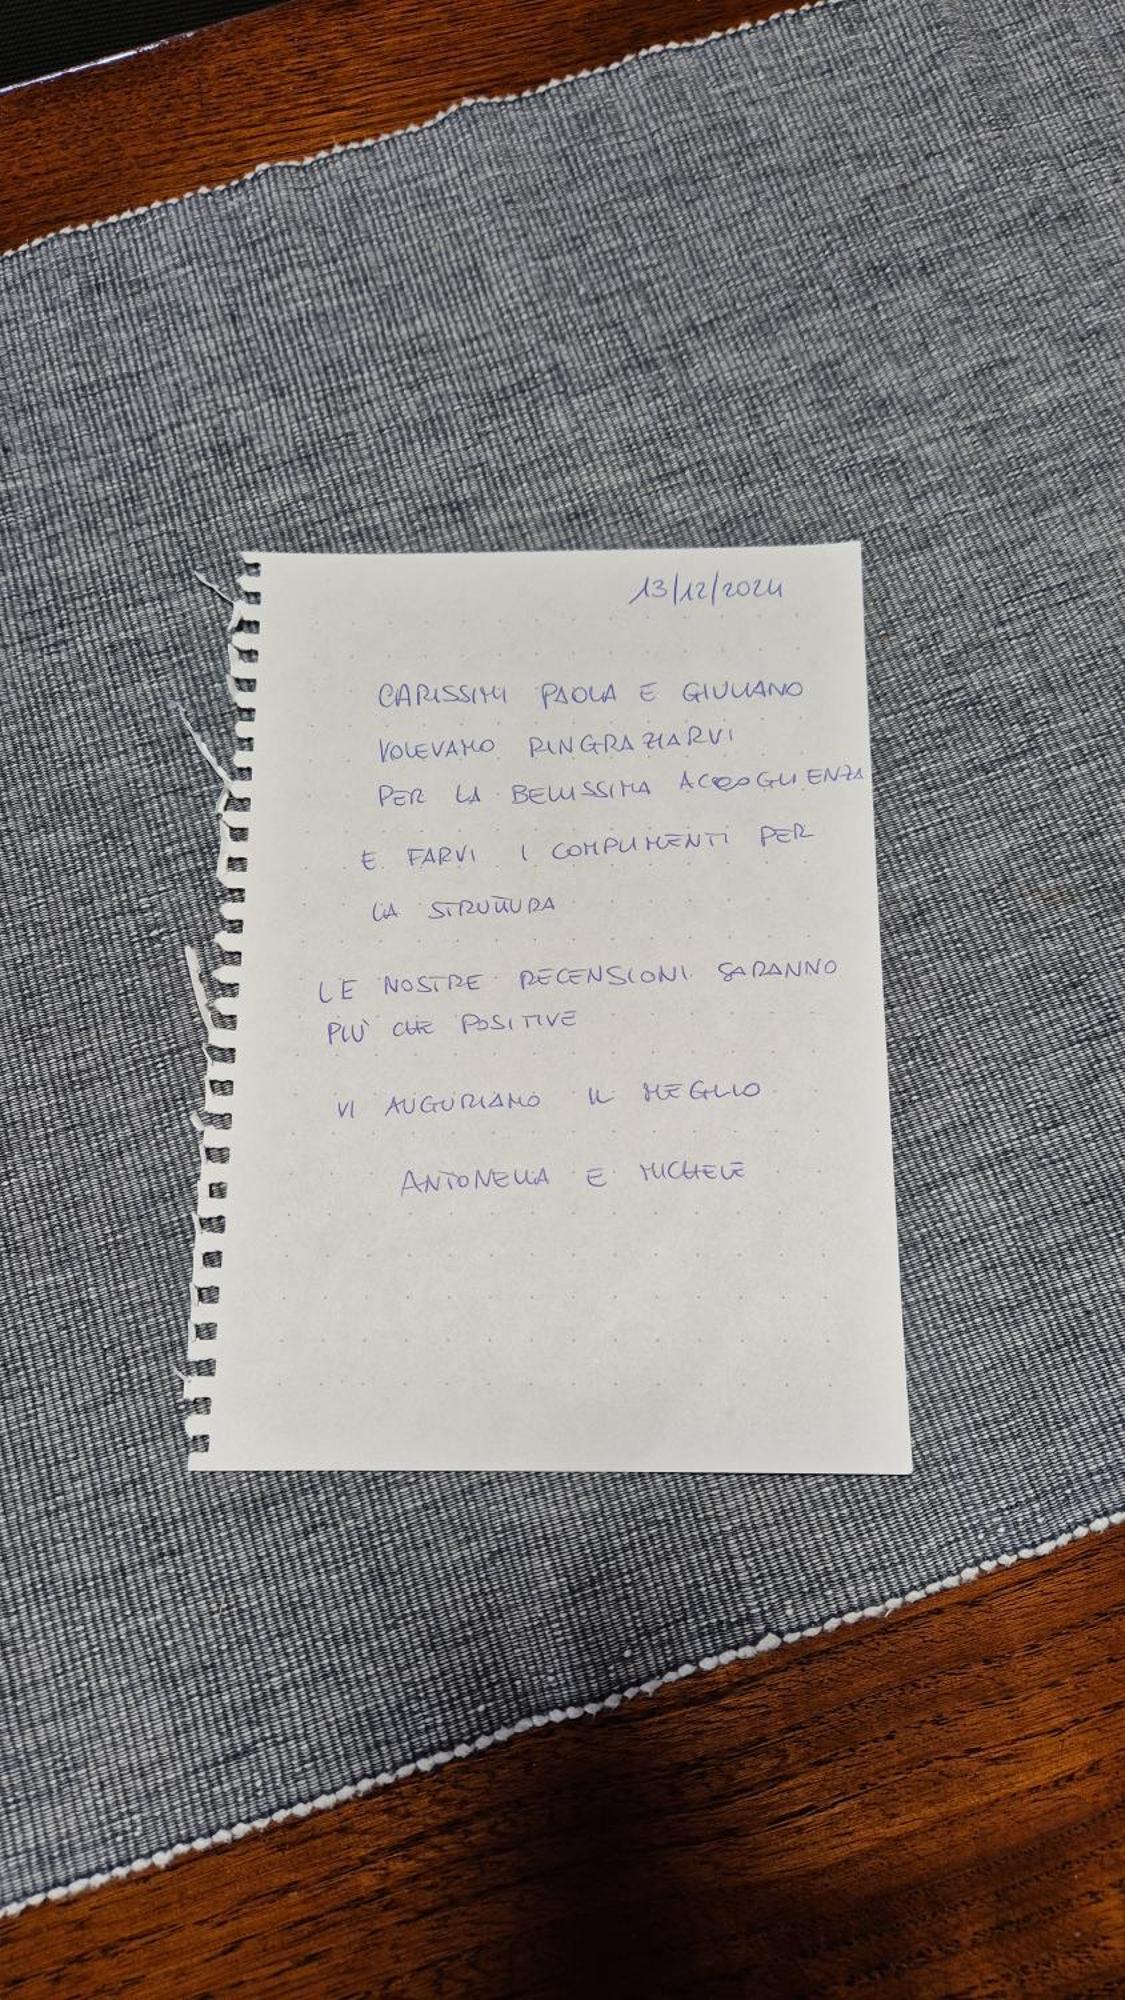 13/12/2024
CARISSIMI PAOLA E GIULIANO
VOLEVAMO RINGRAZIARVI
PER LA BELLISSIMA ACCOGLIENZA
E FARVI I COMPLIMENTI PER
LA STRUTTURA
LE NOSTRE RECENSIONI SARANNO
PIÙ CHE POSITIVE
VI AUGURIAMO IL MEGLIO
ANTONELLA E MICHELE